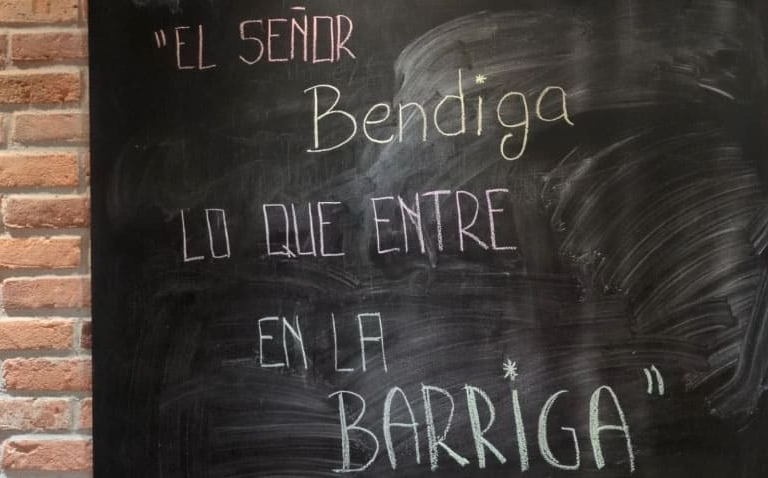 "EL SEÑOR
Bendiga
LO QUE ENTRE
EN LA
BARRIGA"